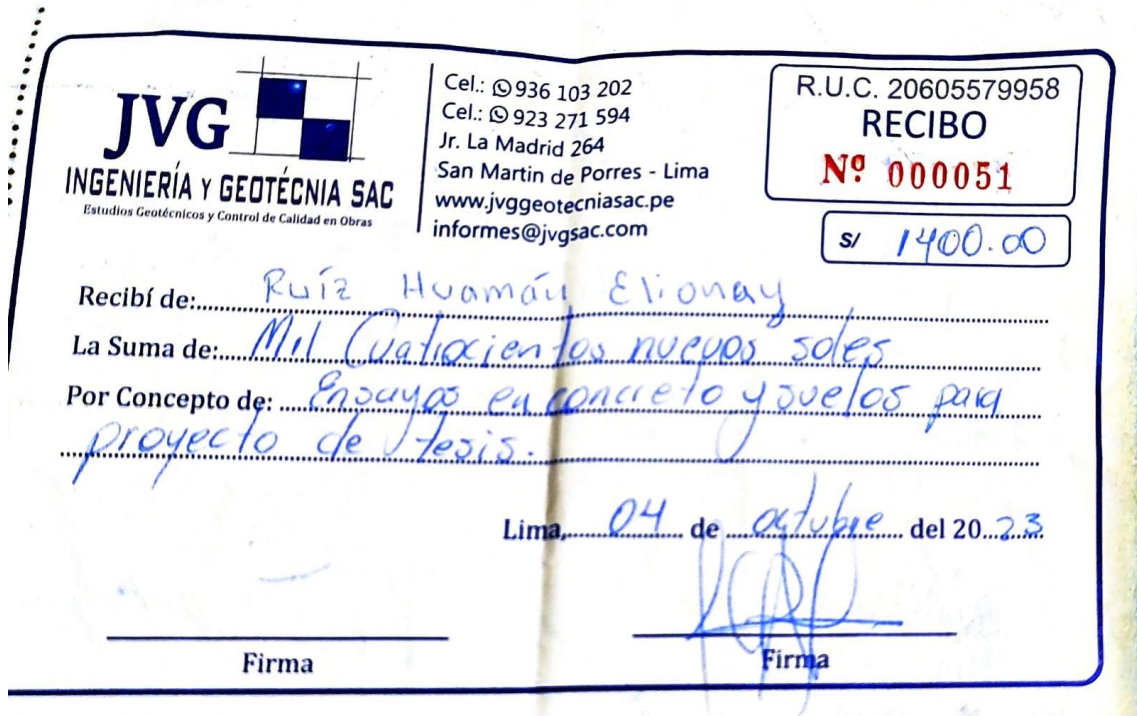 JVG
INGENIERÍA Y GEOTÉCNIA SAC
Estudios Geotécnicos y Control de Calidad en Obras
Cel.: 936 103 202
Cel.: 923 271 594
Jr. La Madrid 264
San Martin de Porres - Lima
www.jvggeotecniasac.pe
informes@jvgsac.com
R.U.C. 20605579958
RECIBO
Nº 000051
S/ 1400.00
Recibí de: Ruíz Huamán Elionay
La Suma de: Mil Cuatrocientos nuevos soles
Por Concepto de: Ensayos en concreto y suelos para
proyecto de tesis.
Lima, 04 de octubre del 2023
Firma
Firma